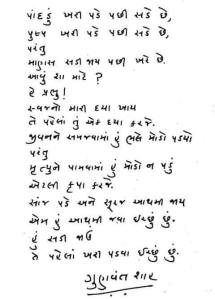 પાંદડું ખરી પડે પછી સડે છે,
પુષ્પ ખરી પડે પછી સડે છે,
પરંતુ
માણસ સડી જાય પછી ખરે છે.
આવું શા માટે ?
હે પ્રભુ !
સ્વજનો મારી દયા ખાય
તે પહેલાં તું એક દયા કરજે.
જીવનને સમજવામાં હું ભલે મોડો પડ્યો
પરંતુ
મૃત્યુને પામવામાં હું મોડો ન પડું
એટલી કૃપા કરજે.
સાંજ પડે અને સૂરજ આથમી જાય
એમ હું આથમી જવા ઈચ્છું છું.
હું સડી જાઉં
તે પહેલાં ખરી પડવા ઈચ્છું છું.
ગુણવંત શાહ